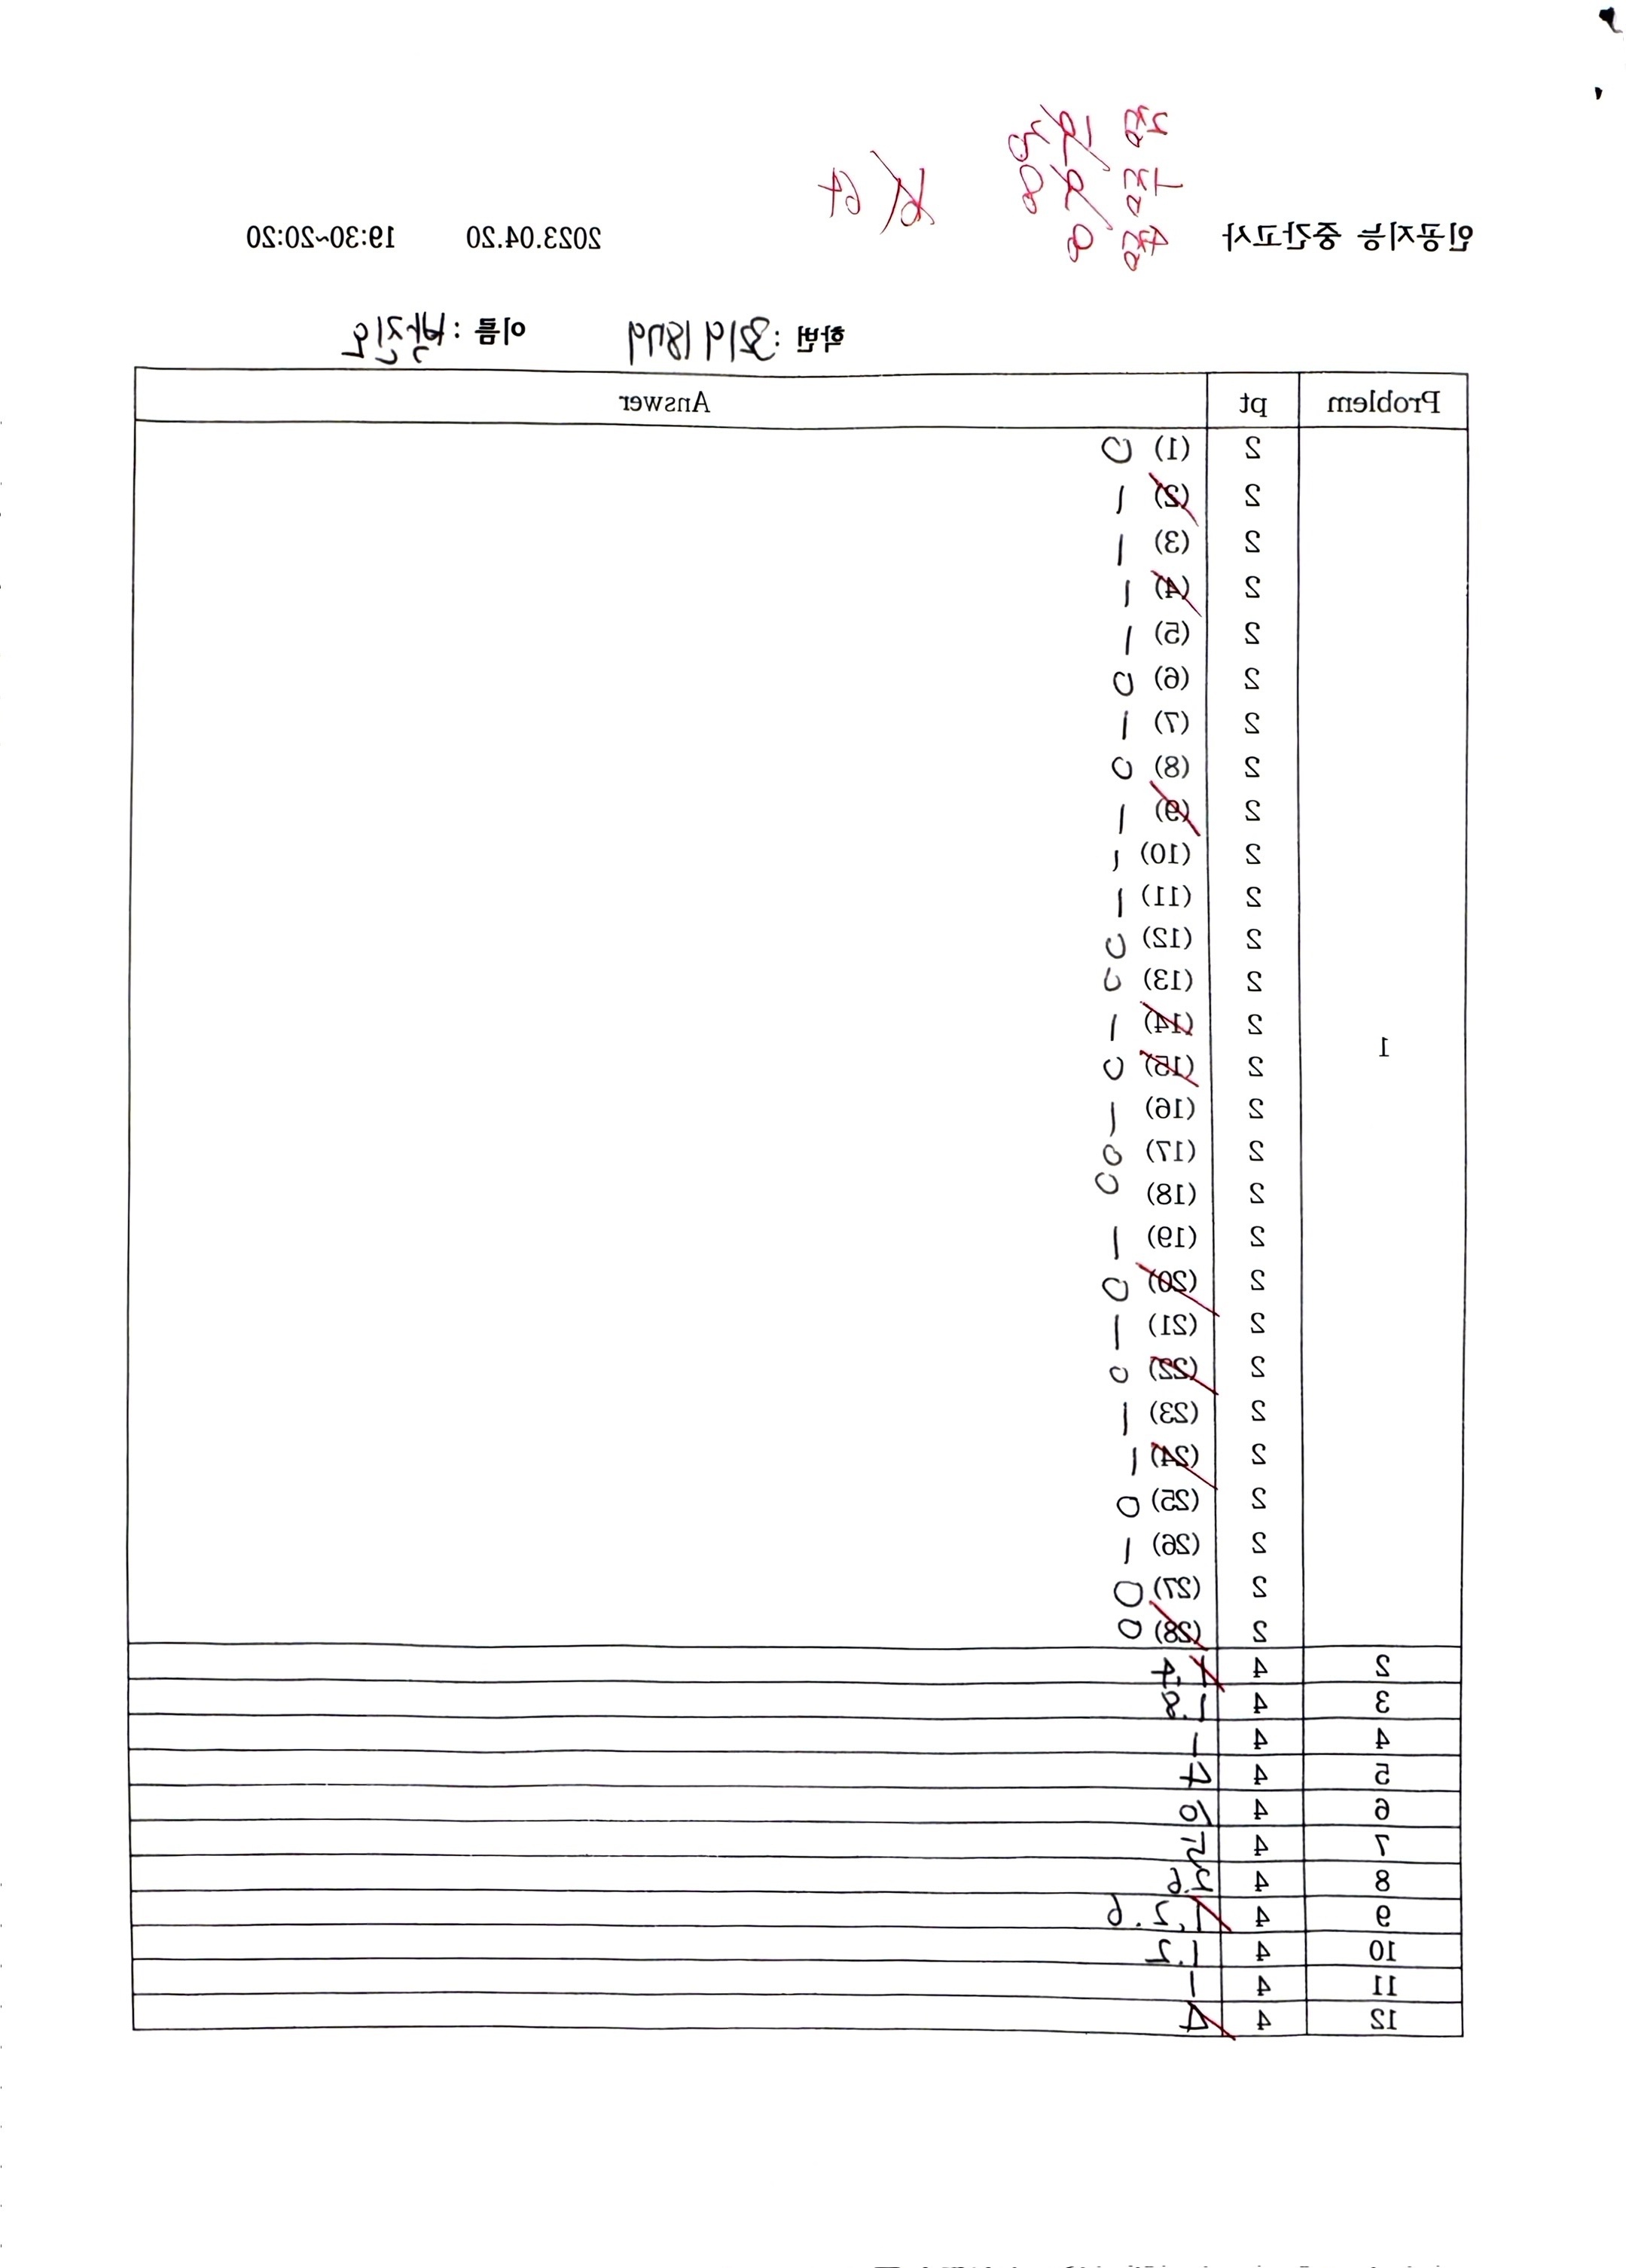 2점
1점
4점
64
인공지능 중간고사 2023.04.20 19:30~20:20
학번 : 32191879 이름 : 박진오
Problem pt Answer
1
2 (1) 0
2 (2) 1
2 (3) 1
2 (4) 1
2 (5) 1
2 (6) 0
2 (7) 1
2 (8) 0
2 (9) 1
2 (10) 1
2 (11) 1
2 (12) 0
2 (13) 0
2 (14) 1
2 (15) 0
2 (16) 1
2 (17) 0
2 (18) 0
2 (19) 1
2 (20) 0
2 (21) 1
2 (22) 0
2 (23) 1
2 (24) 1
2 (25) 0
2 (26) 1
2 (27) 0
2 (28) 0
2 4
3 4 1.8
4 4 1
5 4 4
6 4
7 4
8 4
9 4 1.2.6
10 4 1.2
11 4 1
12 4 4